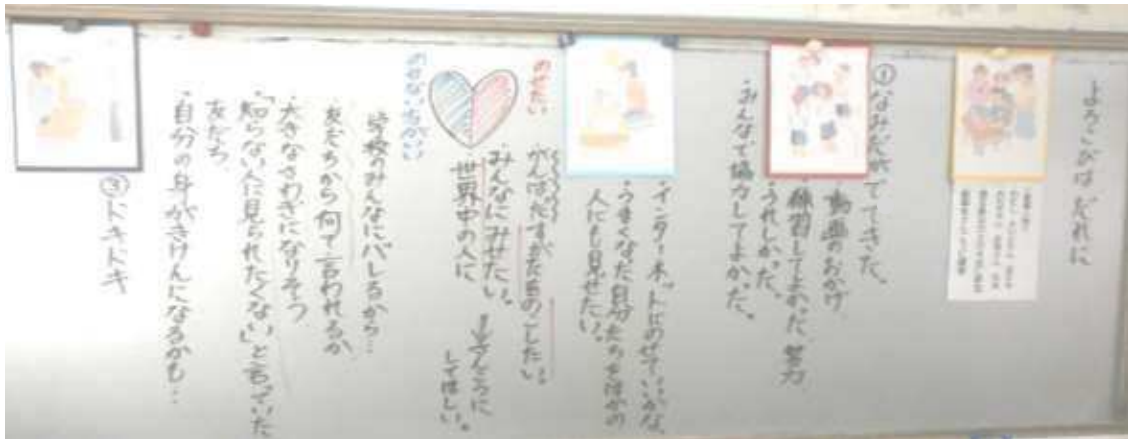 よろこびは だれに
①なみだがでてきた。
・動画のおかげ
・練習してよかった。努力
・うれしかった。
・みんなで協力してよかった。
・インターネットにのせていいかな。
・うまくなった自分たちをほかの
人にも見せたい。
のせたい
がんばったすがたをのこしたい。
みんなにみせたい。
世界中の人に
してほしい。
のせないほうがいい
学校のみんなにバレるから…
友だちから何て言われるか
・大きなさわぎになりそう
・「知らない人に見られたくない」と言っていた
友だち
・自分の身がきけんになるかも…
③ドキドキ